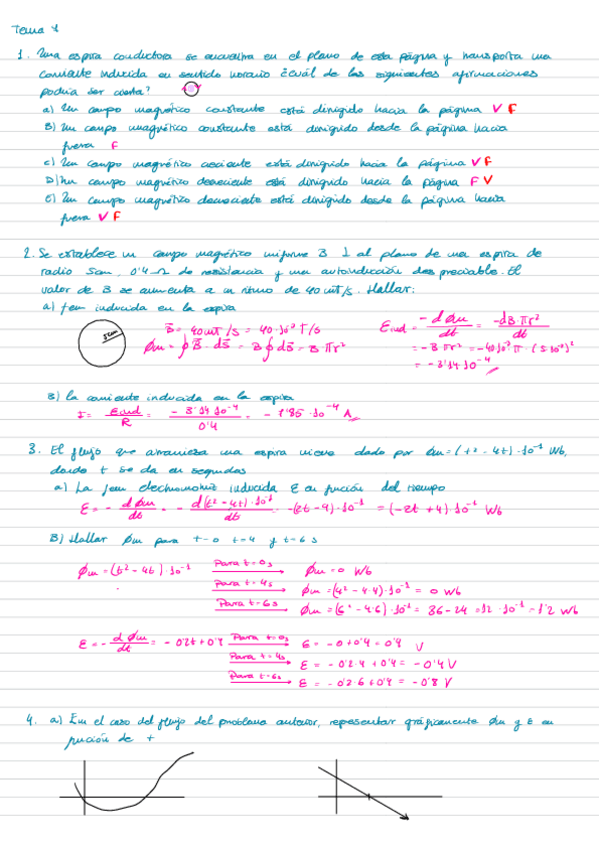 Tema 4
1. Una espira conductora se encuentra en el plano de esta página y transporta una
corriente inducida en sentido horario ¿cuál de las siguientes afirmaciones
podría ser cierta?
a) Un campo magnético constante está dirigido hacia la página V F
B) Un campo magnético constante está dirigido desde la página hacia
fuera F
c) Un campo magnético creciente está dirigido hacia la página V F
D) Un campo magnético decreciente está dirigido hacia la página F V
E) Un campo magnético decreciente está dirigido desde la página hacia
fuera V F
2. Se establece un campo magnético uniforme B ⊥ al plano de una espira de
radio 5cm, 0'4 Ω de resistencia y una autoinducción despreciable. El
valor de B se aumenta a un ritmo de 40 mT/s. Hallar:
a) fem inducida en la espira
5cm
B = 40 mT/s = 40·10⁻³ T/s
Øm = ∮ B · dS = B ∮ dS = B πr²
Eind = -dØm/dt = -dB·πr²/dt
= -B πr² = -40·10⁻³ π · (5·10⁻²)²
= -3'14·10⁻⁴
B) la corriente inducida en la espira
I = Eind/R = -3'14·10⁻⁴/0'4 = -7'85·10⁻⁴ A
3. El flujo que atraviesa una espira viene dado por Øm = (t² - 4t)·10⁻¹ Wb,
donde t se da en segundos
a) La fem electromotriz inducida E en función del tiempo
E = -dØm/dt = -d(t²-4t)·10⁻¹/dt = -(2t-4)·10⁻¹ = (-2t+4)·10⁻¹ Wb
B) Hallar Øm para t=0 t=4 y t=6 s
Øm = (t² - 4t)·10⁻¹ Para t=0s Øm = 0 Wb
Para t=4s Øm = (4² - 4·4)·10⁻¹ = 0 Wb
Para t=6s Øm = (6² - 4·6)·10⁻¹ = 36-24 = 12·10⁻¹ = 1'2 Wb
E = -dØm/dt = -0'2t + 0'4 Para t=0s E = -0+0'4 = 0'4 V
Para t=4s E = -0'2·4 + 0'4 = -0'4 V
Para t=6s E = -0'2·6 + 0'4 = -0'8 V
4. a) En el caso del flujo del problema anterior, representar gráficamente Øm y E en
función de t